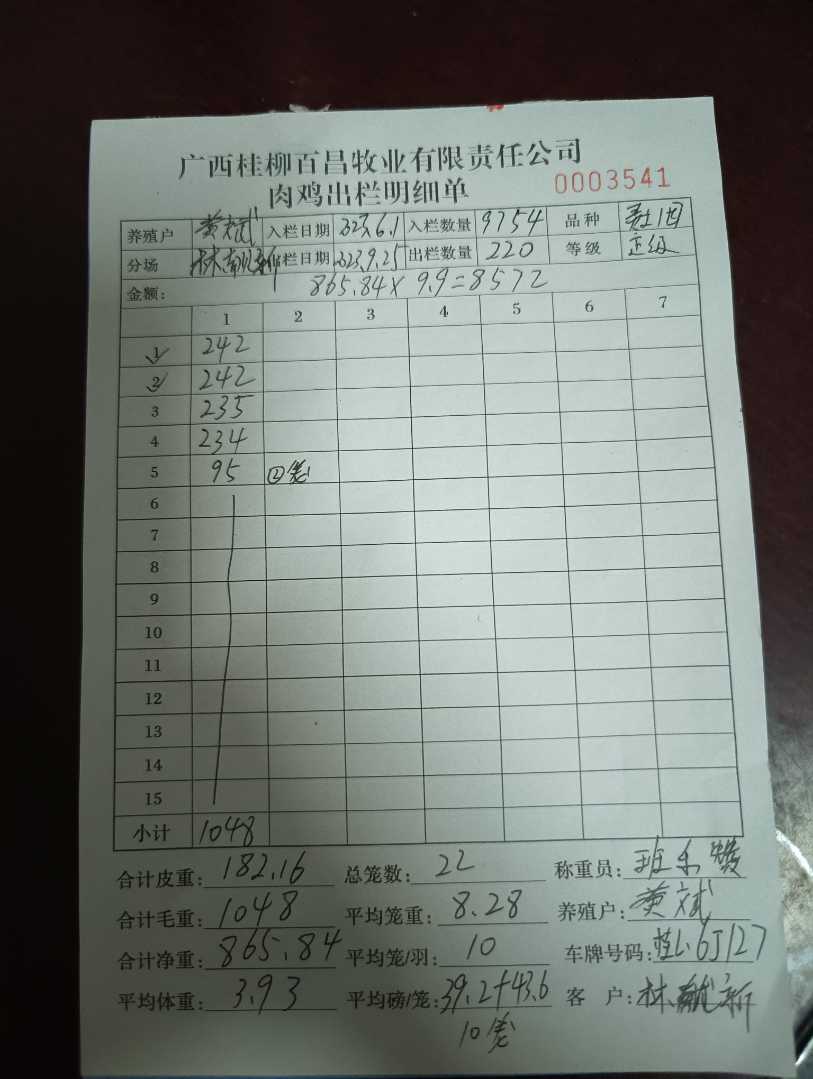 广西桂柳百昌牧业有限责任公司
肉鸡出栏明细单 0003541
养殖户 黄斌 入栏日期 323.6.1 入栏数量 9754 品种
分场 林 出栏日期 323.9.25 出栏数量 220 等级 正级
金额: 865.84×9.9=8572
1 2 3 4 5 6 7
1 242
2 242
3 235
4 234
5 95 ②笼
6
7
8
9
10
11
12
13
14
15
小计 1048
合计皮重: 182.16 总笼数: 22 称重员: 班
合计毛重: 1048 平均笼重: 8.28 养殖户: 黄斌
合计净重: 865.84 平均笼/羽: 10 车牌号码: 桂L·6J127
平均体重: 3.93 平均磅/笼: 39.2+43.6 客 户: 林新
10笼